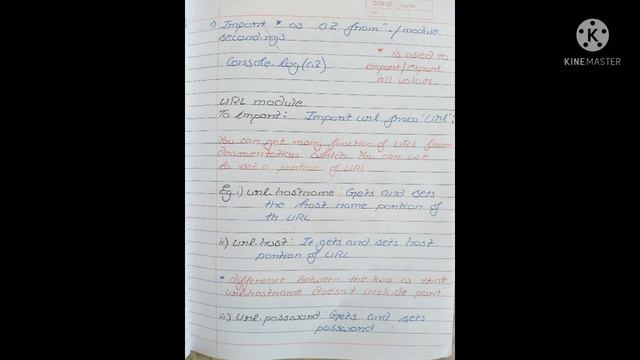 Import * as a2 from "./module
second.mjs
Console.log(a2)
* is used to
import/export
all values
URL module
To import: Import url from 'Url';
You can get many function of URL from
documentation which you can use
to set a portion of URL
Eg i) url.hostname: Gets and sets
the host name portion of
th URL
ii) url.host: It gets and sets host
portion of URL
* difference between the two is that
url.hostname doesn't include port
iii) Url.password: Gets and sets
password
KINEMASTER